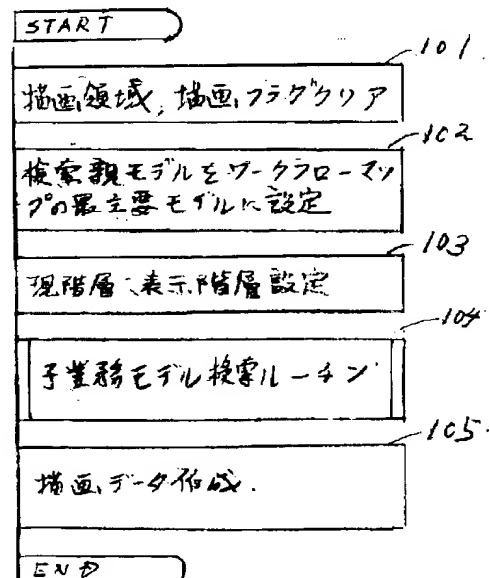 START
101
描画領域, 描画フラグクリア
102
検索親モデルをワークフローマッ
プの最主要モデルに設定
103
現階層、表示階層設定
104
子業務モデル検索ルーチン
105
描画データ作成.
END